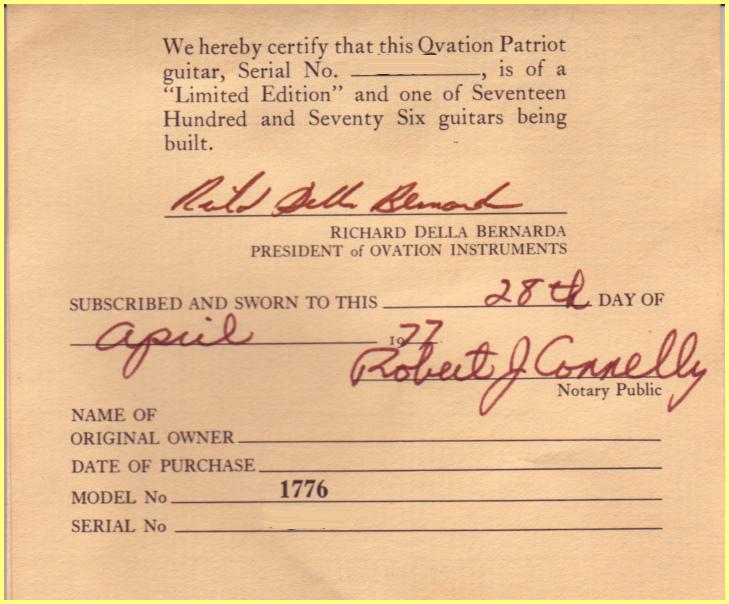 We hereby certify that this Ovation Patriot
guitar, Serial No. , is of a
“Limited Edition” and one of Seventeen
Hundred and Seventy Six guitars being
built.
Richd Della Bernarda
RICHARD DELLA BERNARDA
PRESIDENT of OVATION INSTRUMENTS
SUBSCRIBED AND SWORN TO THIS 28th DAY OF
April 1977
Robert J Connelly
Notary Public
NAME OF
ORIGINAL OWNER
DATE OF PURCHASE
MODEL No 1776
SERIAL No